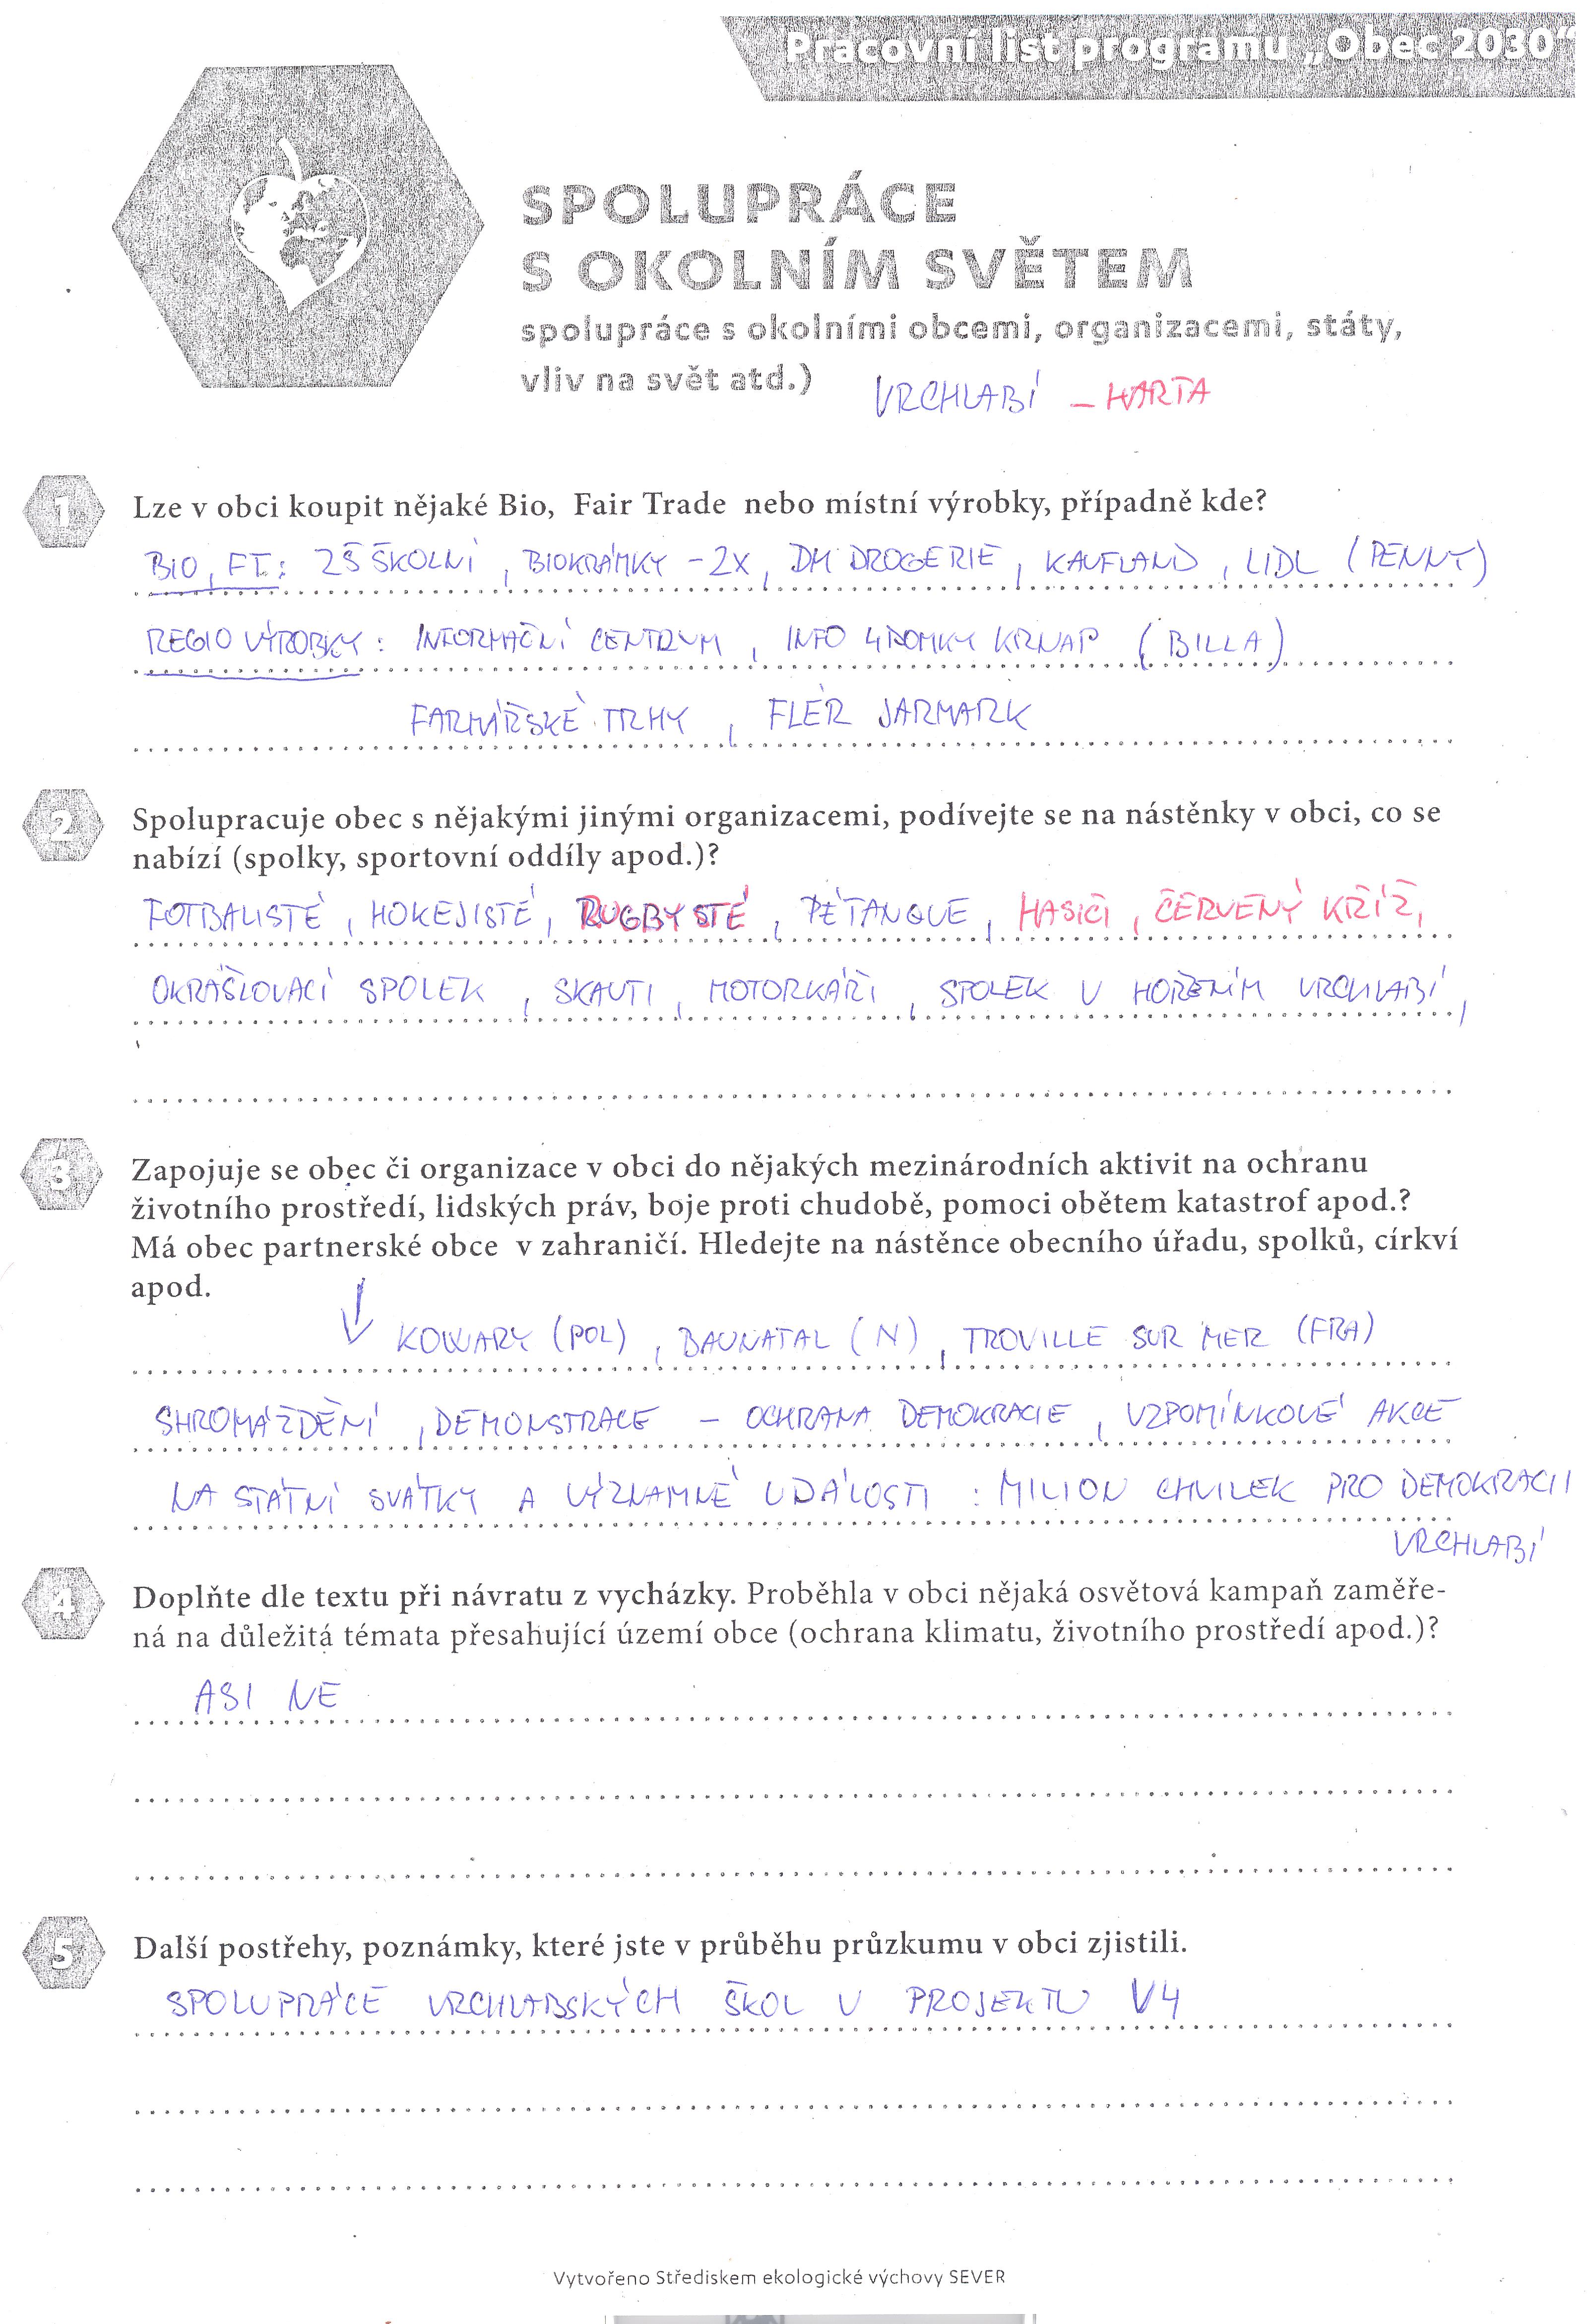 Pracovní list programu „Obec 2030“
SPOLUPRÁCE
S OKOLNÍM SVĚTEM
spolupráce s okolními obcemi, organizacemi, státy,
vliv na svět atd.)
VRCHLABÍ – HARTA
1
Lze v obci koupit nějaké Bio, Fair Trade nebo místní výrobky, případně kde?
BIO, FT.: ZŠ ŠKOLNÍ, BIOKRÁMKY – 2X, DM DROGERIE, KAUFLAND, LIDL (PENNY)
REGIO VÝROBKY: INFORMAČNÍ CENTRUM, INFO 4DOMKY KRNAP (BILLA)
FARMÁŘSKÉ TRHY, FLÉR JARMARK
2
Spolupracuje obec s nějakými jinými organizacemi, podívejte se na nástěnky v obci, co se
nabízí (spolky, sportovní oddíly apod.)?
FOTBALISTÉ, HOKEJISTÉ, RUGBYSTÉ, PÉTANQUE, HASIČI, ČERVENÝ KŘÍŽ,
OKRÁŠLOVACÍ SPOLEK, SKAUTI, MOTORKÁŘI, SPOLEK V HOŘENÍM VRCHLABÍ,
3
Zapojuje se obec či organizace v obci do nějakých mezinárodních aktivit na ochranu
životního prostředí, lidských práv, boje proti chudobě, pomoci obětem katastrof apod.?
Má obec partnerské obce v zahraničí. Hledejte na nástěnce obecního úřadu, spolků, církví
apod.
KOWARY (POL), BAUNATAL (N), TROVILLE SUR MER (FRA)
SHROMÁŽDĚNÍ, DEMONSTRACE – OCHRANA DEMOKRACIE, VZPOMÍNKOVÉ AKCE
NA STÁTNÍ SVÁTKY A VÝZNAMNÉ UDÁLOSTI : MILION CHVILEK PRO DEMOKRACII
VRCHLABÍ
4
Doplňte dle textu při návratu z vycházky. Proběhla v obci nějaká osvětová kampaň zaměře-
ná na důležitá témata přesahující území obce (ochrana klimatu, životního prostředí apod.)?
ASI NE
5
Další postřehy, poznámky, které jste v průběhu průzkumu v obci zjistili.
SPOLUPRÁCE VRCHLABSKÝCH ŠKOL V PROJEKTU V4
Vytvořeno Střediskem ekologické výchovy SEVER